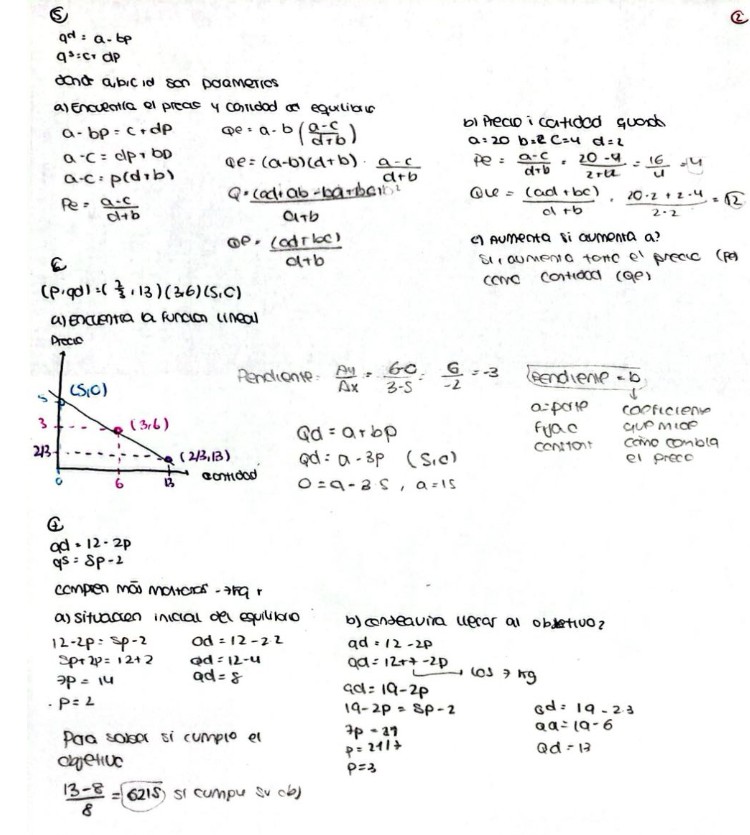 ②
⑤
qd = a - bp
qs = c + dp
donde a, b, c i d son parametros
a) Encuentra el precio y cantidad de equilibrio
a - bp = c + dp
a - c = dp + bp
a - c = p(d+b)
Pe = a-c / d+b
Qe = a - b (a-c / d+b)
Qe = (a-b)(d+b) · a-c / d+b
d+b
Qe = (ad + bc) / d+b
b) Precio i cantidad quando
a=20 b=2 c=4 d=2
Pe = a-c / d+b = 20-4 / 2+2 = 16 / 4 = 4
Qe = (ad + bc) / d+b = 20·2 + 2·4 / 2·2 = 12
c) Aumenta si aumenta a?
Si, aumenta tanto el precio (Pe)
como cantidad (Qe)
(P, qd) = (2/3, 13) (3,6) (5,0)
a) Encuentra la funcion lineal
Precio
5
(5,0)
3
(3,6)
2/3
(2/3,13)
0
6
13
cantidad
Pendiente: Δy / Δx = 6-0 / 3-5 = 6 / -2 = -3
Pendiente = b
a = parte
fija o
constant
coeficiente
que mide
como cambia
el precio
Qd = a + bp
Qd = a - 3p (5,0)
0 = a - 3·5, a = 15
qd = 12 - 2p
qs = 5p - 2
compren más
a) situacion inicial del equilibrio
12 - 2p = 5p - 2
5p + 2p = 12 + 2
7p = 14
p = 2
Qd = 12 - 2·2
Qd = 12 - 4
qd = 8
Para saber si cumplio el
objetivo
13-8 / 8 = 62,5 si cumple su obj
b) conseguira llegar al objetivo?
qd = 12 - 2p
qd = 12 + 7 - 2p
los 7 kg
qd = 19 - 2p
19 - 2p = 5p - 2
7p = 21
p = 21/7
p = 3
Qd = 19 - 2·3
Qd = 19 - 6
Qd = 13